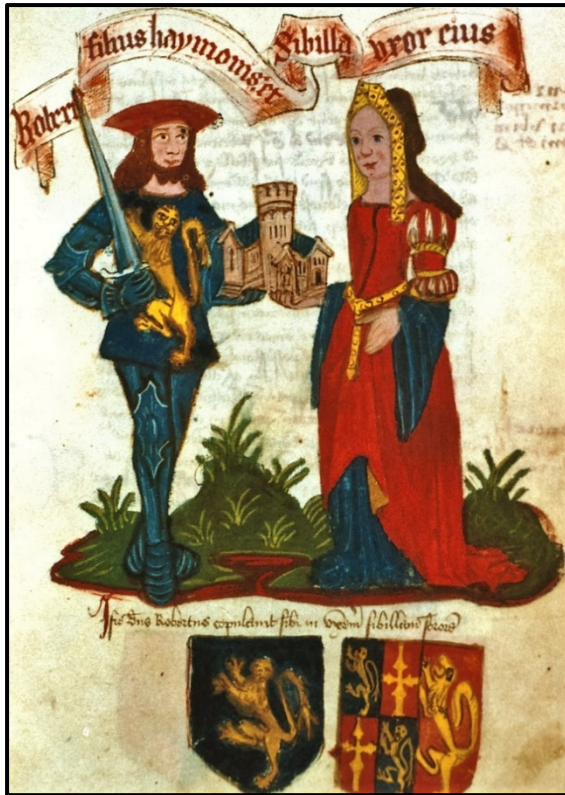 Robert filius haymonis et Sibilla vxor eius
Iste dns Robertus copulauit sibi in vxorē sibillam sororē